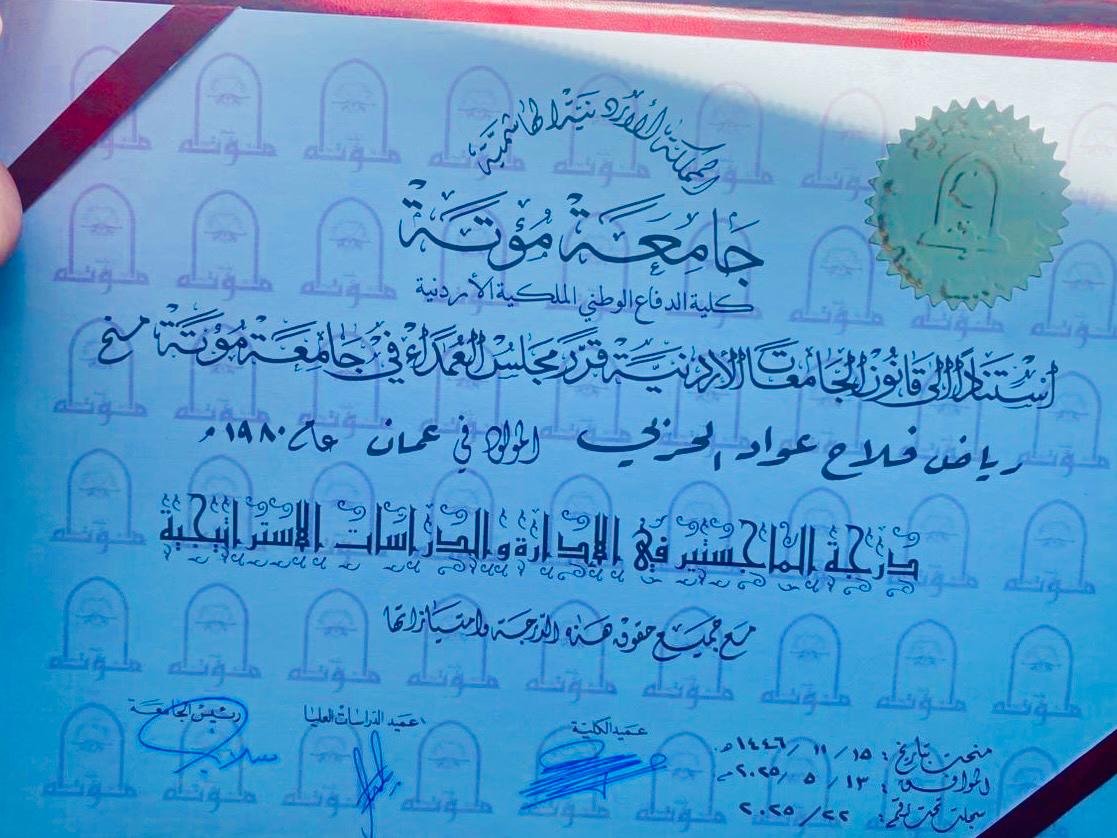 المملكة الأردنية الهاشمية
جامعة مؤتة
كلية الدفاع الوطني الملكية الأردنية
استناداً إلى قانون الجامعات الأردنية قرر مجلس العمداء في جامعة مؤتة منح
رياض فلاح عواد الحربي المولود في عمان عام ١٩٨٠م
درجة الماجستير في الإدارة والدراسات الاستراتيجية
مع جميع حقوق هذه الدرجة وامتيازاتها
منحت بتاريخ : ١٥ / ١١ / ١٤٤٦هـ
الموافق : ١٣ / ٥ / ٢٠٢٥م
سجلت تحت رقم : ٢٢ / ٢٠٢٥
عميد الكلية
عميد الدراسات العليا
رئيس الجامعة